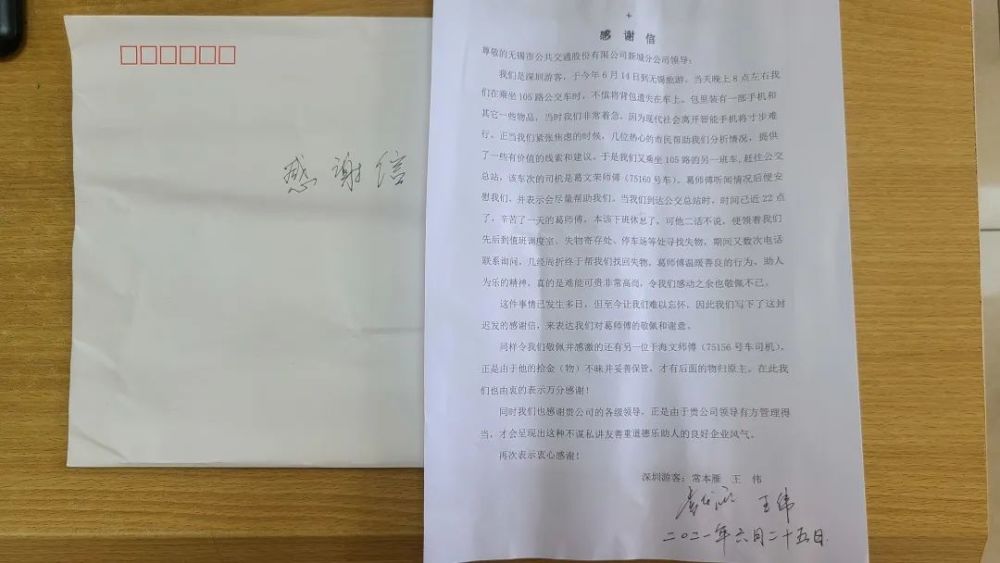 感谢信
感 谢 信
尊敬的无锡市公共交通股份有限公司新城分公司领导：
我们是深圳游客，于今年6月14日到无锡旅游。当天晚上8点左右我
们在乘坐105路公交车时，不慎将背包遗失在车上。包里装有一部手机和
其它一些物品，当时我们非常着急，因为现代社会离开智能手机将寸步难
行。正当我们紧张焦虑的时候，几位热心的市民帮助我们分析情况，提供
了一些有价值的线索和建议。于是我们又乘坐105路的另一班车，赶往公交
总站，该车次的司机是葛文荣师傅（75160号车）。葛师傅听闻情况后便安
慰我们，并表示会尽量帮助我们。当我们到达公交总站时，时间已近22点
了，辛苦了一天的葛师傅，本该下班休息了，可他二话不说，便领着我们
先后到值班调度室、失物寄存处、停车场等处寻找失物，期间又数次电话
联系询问，几经周折终于帮我们找回失物。葛师傅温暖善良的行为、助人
为乐的精神，真的是难能可贵非常高尚，令我们感动之余也敬佩不已。
这件事情已发生多日，但至今让我们难以忘怀，因此我们写下了这封
迟发的感谢信，来表达我们对葛师傅的敬佩和谢意。
同样令我们敬佩并感激的还有另一位于海文师傅（75156号车司机），
正是由于他的拾金（物）不昧并妥善保管，才有后面的物归原主。在此我
们也由衷的表示万分感谢！
同时我们也感谢贵公司的各级领导，正是由于贵公司领导有方管理得
当，才会呈现出这种不谋私讲友善重道德乐助人的良好企业风气。
再次表示衷心感谢！
深圳游客：常本雁 王 伟
王伟
二〇二一年六月二十五日